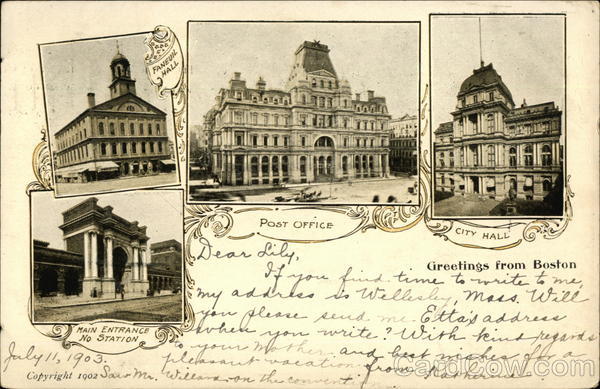 FANEUIL
HALL
POST OFFICE
CITY HALL
MAIN ENTRANCE
NO STATION
Greetings from Boston
Dear Lily,
If you find time to write to me,
my address is Wellesley, Mass. Will
you please send me Etta's address
when you write? With kind regards
to your mother, and best wishes for a
pleasant vacation from Katharine
July 11, 1903.
Copyright 1902
Saw Mr. Willard on the
cardcow.com